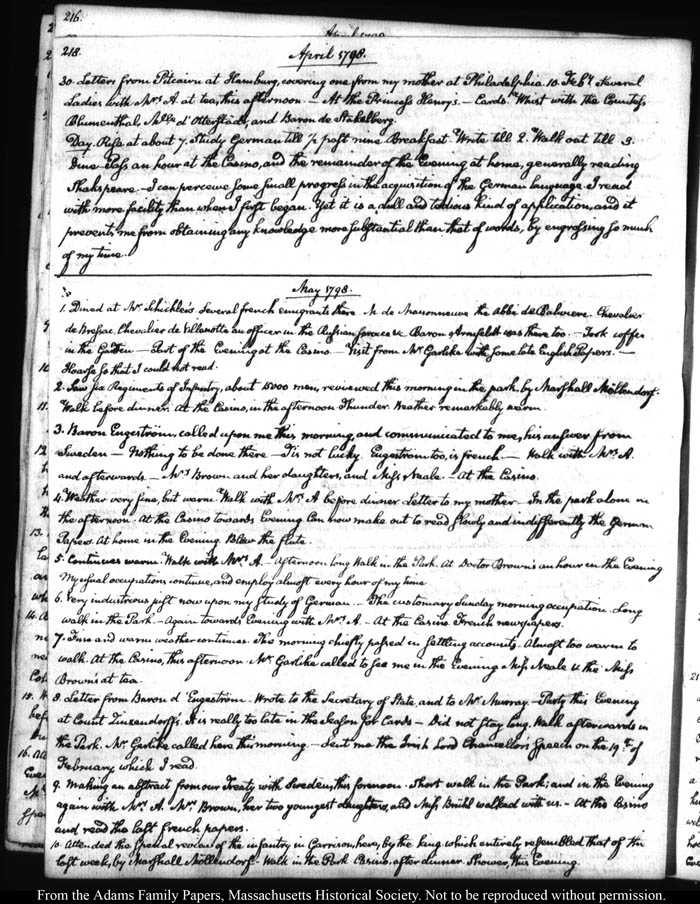 216.
218.
April 1798.
30. Letters from Pitcairn at Hamburg, covering one from my mother at Philadelphia. 10. Feby. Several
Ladies with Mrs. A. at tea, this afternoon. — At the Princess Henry's. — Cards Whist with the Countess
Blumenthal, Mlle. d'Otterstädt, and Baron de Stakelberg.
Day. Rise at about 7. Study German till ½ past nine. Breakfast. Write till 2. Walk out till 3.
Dine. Pass an hour at the Casino, and the remainder of the Evening at home, generally reading
Shakspeare. — I can perceive some small progress in the acquisition of the German language. I read
with more facility than when I first began. Yet it is a dull and tedious kind of application, and it
prevents me from obtaining any knowledge more substantial than that of words, by engrossing so much
of my time.
May 1798.
1. Dined at Mr. Schickler's. Several french emigrants there. M. de Maisonneuve the Abbé de Baliviere. Chevalier
de Bressac, Chevalier de Villenotte an officer in the Russian service &c. Baron Armfeldt was there too. — Took coffee
in the Garden — Part of the Evening at the Casino. Visit from Mr. Garlike with some late English Papers. —
Hoarse so that I could not read.
2. Saw six Regiments of Infantry, about 15000 men, reviewed this morning in the park, by Marshall Möllendorf.
Walk before dinner. At the Casino, in the afternoon Thunder. Weather remarkably warm.
3. Baron Engeström, called upon me this morning, and communicated to me, his answer from
Sweden — Nothing to be done there — I is not lucky. Engeström too, is french. — Walk with Mrs. A.
and afterwards — Mrs. Brown and her daughters, and Miss Neale. — At the Casino.
4. Weather very fine, but warm. Walk with Mrs. A before dinner. Letter to my mother. In the park alone in
the afternoon. At the Casino towards Evening. Can now make out to read slowly and indifferently the German
Papers. At home in the Evening. Blew the flute.
5. Continues warm. Walk with Mrs. A. — Afternoon long Walk in the Park. At Doctor Brown's an hour in the Evening
My usual occupations continue, and employ almost every hour of my time.
6. Very industrious just now upon my study of German. — The customary Sunday morning occupation. Long
walk in the Park. — Again towards Evening with Mrs. A. — At the Casino French newspapers.
7. Fine and warm weather continues. The morning chiefly passed in settling accounts. Almost too warm to
walk. At the Casino, this afternoon. Mr. Garlike called to see me in the Evening. Miss Neale & the Miss
Brown's at tea.
8. Letter from Baron d'Engeström. Wrote to the Secretary of State, and to Mr. Murray. — Party this Evening
at Count Zinzendorff's. It is really too late in the Season for Cards — Did not stay long. Walk afterwards in
the Park. Mr. Garlike called here this morning. — Sent me the Irish Lord Chancellor's Speech on the 19th. of
February, which I read.
9. Making an abstract from our Treaty with Sweden, this forenoon. Short walk in the Park; and in the Evening
again with Mrs. A. Mrs. Brown, her two youngest daughters, and Miss Brühl walked with us. — At the Casino
and read the last french papers.
10. Attended the special review of the infantry in Garrison, here, by the king, which entirely resembled that of the
last week, by Marshall Möllendorf. Walk in the Park. Casino. after dinner. Shower, this Evening.
From the Adams Family Papers, Massachusetts Historical Society. Not to be reproduced without permission.